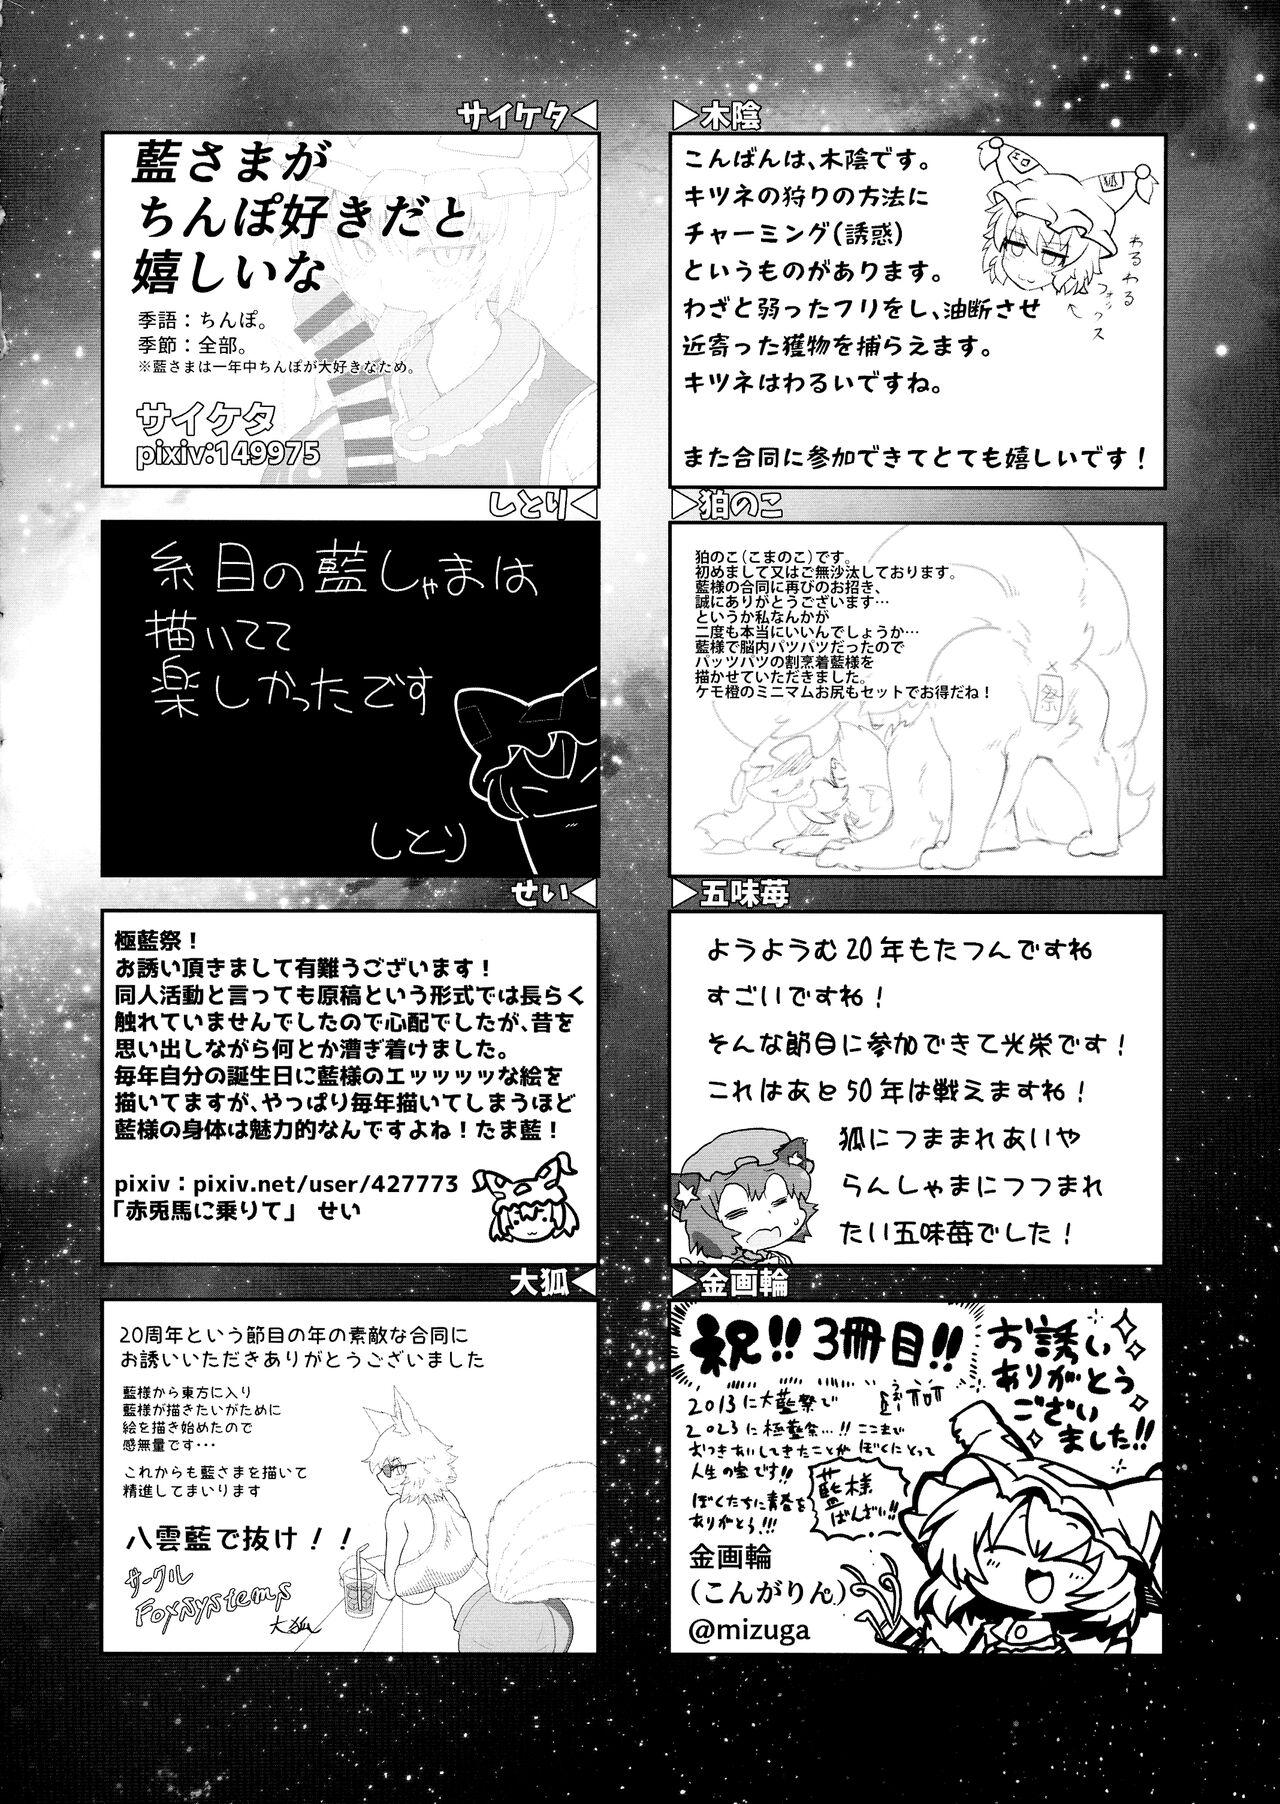 ▷木陰
こんばんは、木陰です。
キツネの狩りの方法に
チャーミング(誘惑)
というものがあります。
わざと弱ったフリをし、油断させ
近寄った獲物を捕らえます。
キツネはわるいですね。
また合同に参加できてとても嬉しいです!
エロ
狐
わるわる
フォックス
サイケタ◁
藍さまが
ちんぽ好きだと
嬉しいな
季語:ちんぽ。
季節:全部。
※藍さまは一年中ちんぽが大好きなため。
サイケタ
pixiv:149975
▷狛のこ
狛のこ(こまのこ)です。
初めまして又はご無沙汰しております。
藍様の合同に再びのお招き、
誠にありがとうございます…
というか私なんかが
二度も本当にいいんでしょうか…
藍様で脳内パツパツだったので
パッツパツの割烹着藍様を
描かせていただきました。
ケモ橙のミニマムお尻もセットでお得だね!
祭
しとり◁
糸目の藍しゃまは
描いてて
楽しかったです
しとり
▷五味苺
ようようむ20年もたつんですね
すごいですね!
そんな節目に参加できて光栄です!
これはあと50年は戦えますね!
狐につままれあいや
らんしゃまにつつまれ
たい五味苺でした!
せい◁
極藍祭!
お誘い頂きまして有難うございます!
同人活動と言っても原稿という形式では長らく
触れていませんでしたので心配でしたが、昔を
思い出しながら何とか漕ぎ着けました。
毎年自分の誕生日に藍様のエッッッッな絵を
描いてますが、やっぱり毎年描いてしまうほど
藍様の身体は魅力的なんですよね!たま藍!
pixiv:pixiv.net/user/427773
「赤兎馬に乗りて」 せい
▷金画輪
祝!!3冊目!!
お誘い
ありがとう
ござい
ました!!
2013に大藍祭で
2023に極藍祭…!! ここまで
おつきあいしてきたことが ぼくにとって
人生の宝です!!
ぼくたちに青春を
ありがとう!!!
藍様
ばんざい!!
金画輪
(こんがりん)
@mizuga
大狐◁
20周年という節目の年の素敵な合同に
お誘いいただきありがとうございました
藍様から東方に入り
藍様が描きたいがために
絵を描き始めたので
感無量です・・・
これからも藍さまを描いて
精進してまいります
八雲藍で抜け!!
サークル
Foxsystems
大狐